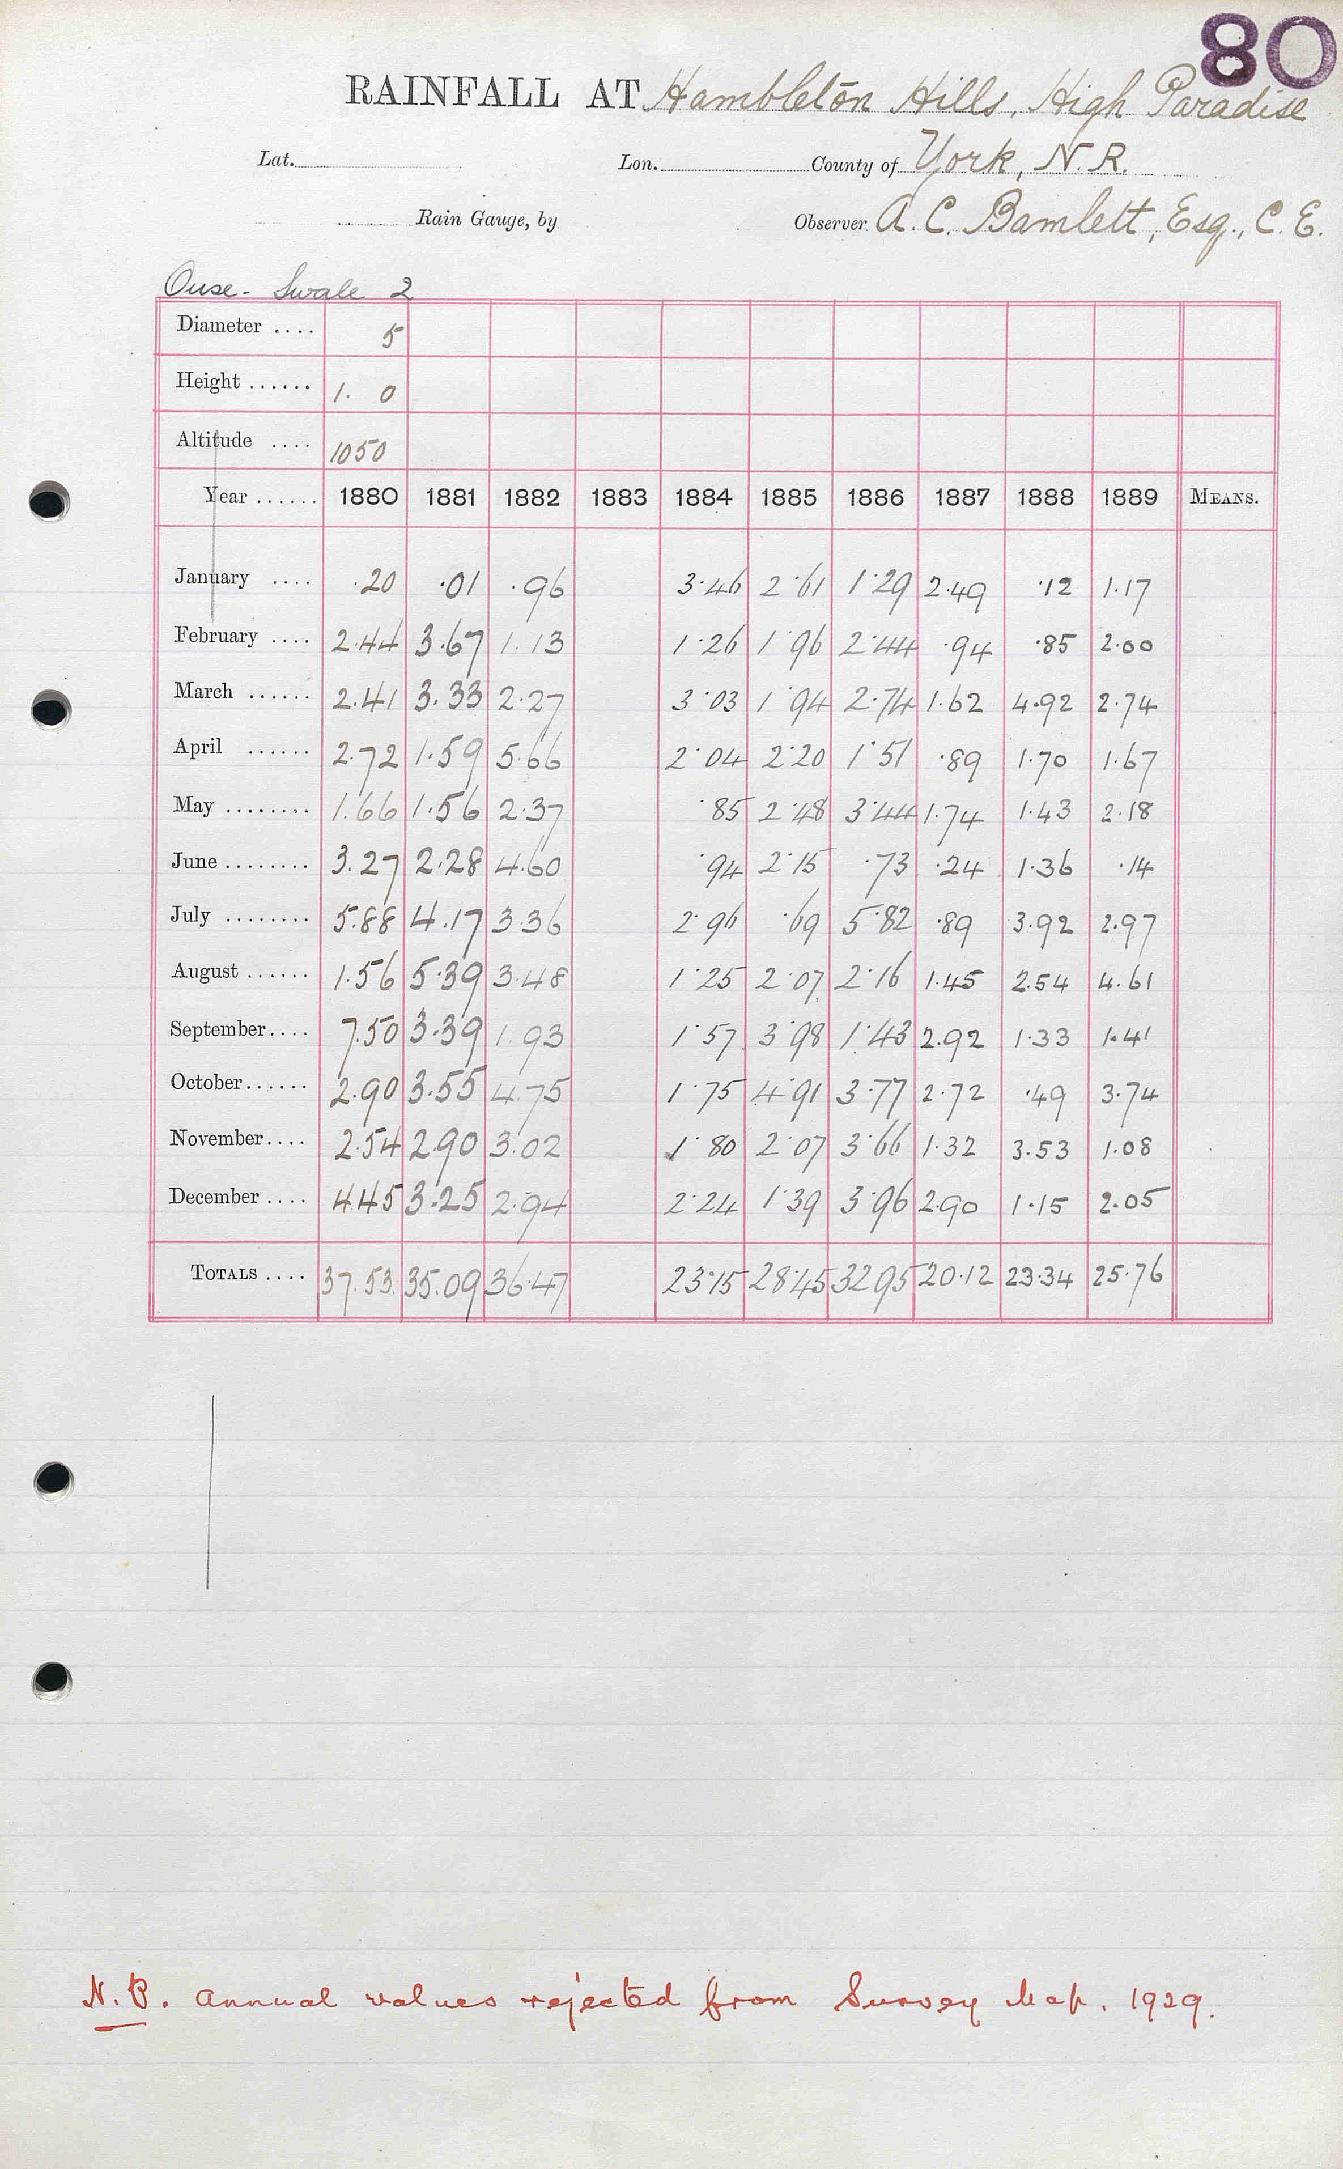 80
RAINFALL AT Hambleton Hills, High Paradise
Lat. Lon. County of York, N.R.
Rain Gauge, by Observer A. C. Bamlett, Esq., C. E.
Ouse - Swale 2
Diameter .... 5
Height ...... 1. 0
Altitude .... 1050
Year ...... 1880 1881 1882 1883 1884 1885 1886 1887 1888 1889 MEANS.
January .... .20 .01 .96 3.46 2.61 1.29 2.49 .12 1.17
February .... 2.44 3.67 1.13 1.26 1.96 2.44 .94 .85 2.00
March ...... 2.41 3.33 2.27 3.03 1.94 2.74 1.62 4.92 2.74
April ...... 2.72 1.59 5.66 2.04 2.20 1.51 .89 1.70 1.67
May ........ 1.66 1.56 2.37 .85 2.48 3.44 1.74 1.43 2.18
June ........ 3.27 2.28 4.60 .94 2.15 .73 .24 1.36 .14
July ........ 5.88 4.17 3.36 2.96 .69 5.82 .89 3.92 2.97
August ...... 1.56 5.39 3.48 1.25 2.07 2.16 1.45 2.54 4.61
September.... 7.50 3.39 1.93 1.57 3.98 1.43 2.92 1.33 1.41
October...... 2.90 3.55 4.75 1.75 4.91 3.77 2.72 .49 3.74
November.... 2.54 2.90 3.02 1.80 2.07 3.66 1.32 3.53 1.08
December .... 4.45 3.25 2.94 2.24 1.39 3.96 2.90 1.15 2.05
TOTALS .... 37.53 35.09 36.47 23.15 28.45 32.95 20.12 23.34 25.76
N.B. Annual values rejected from Survey Map. 1929.